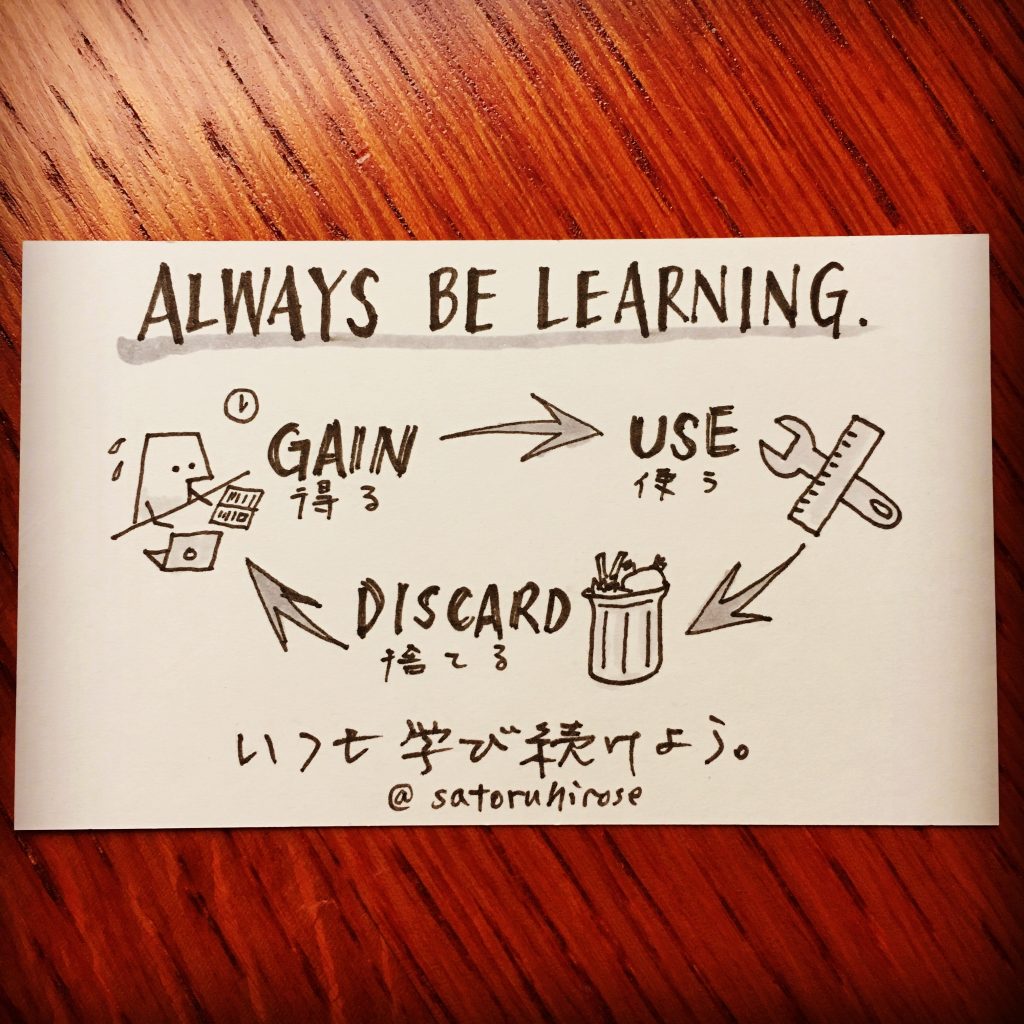 ALWAYS BE LEARNING.
GAIN
得る
USE
使う
DISCARD
捨てる
いつも学び続けよう。
@satoruhirose